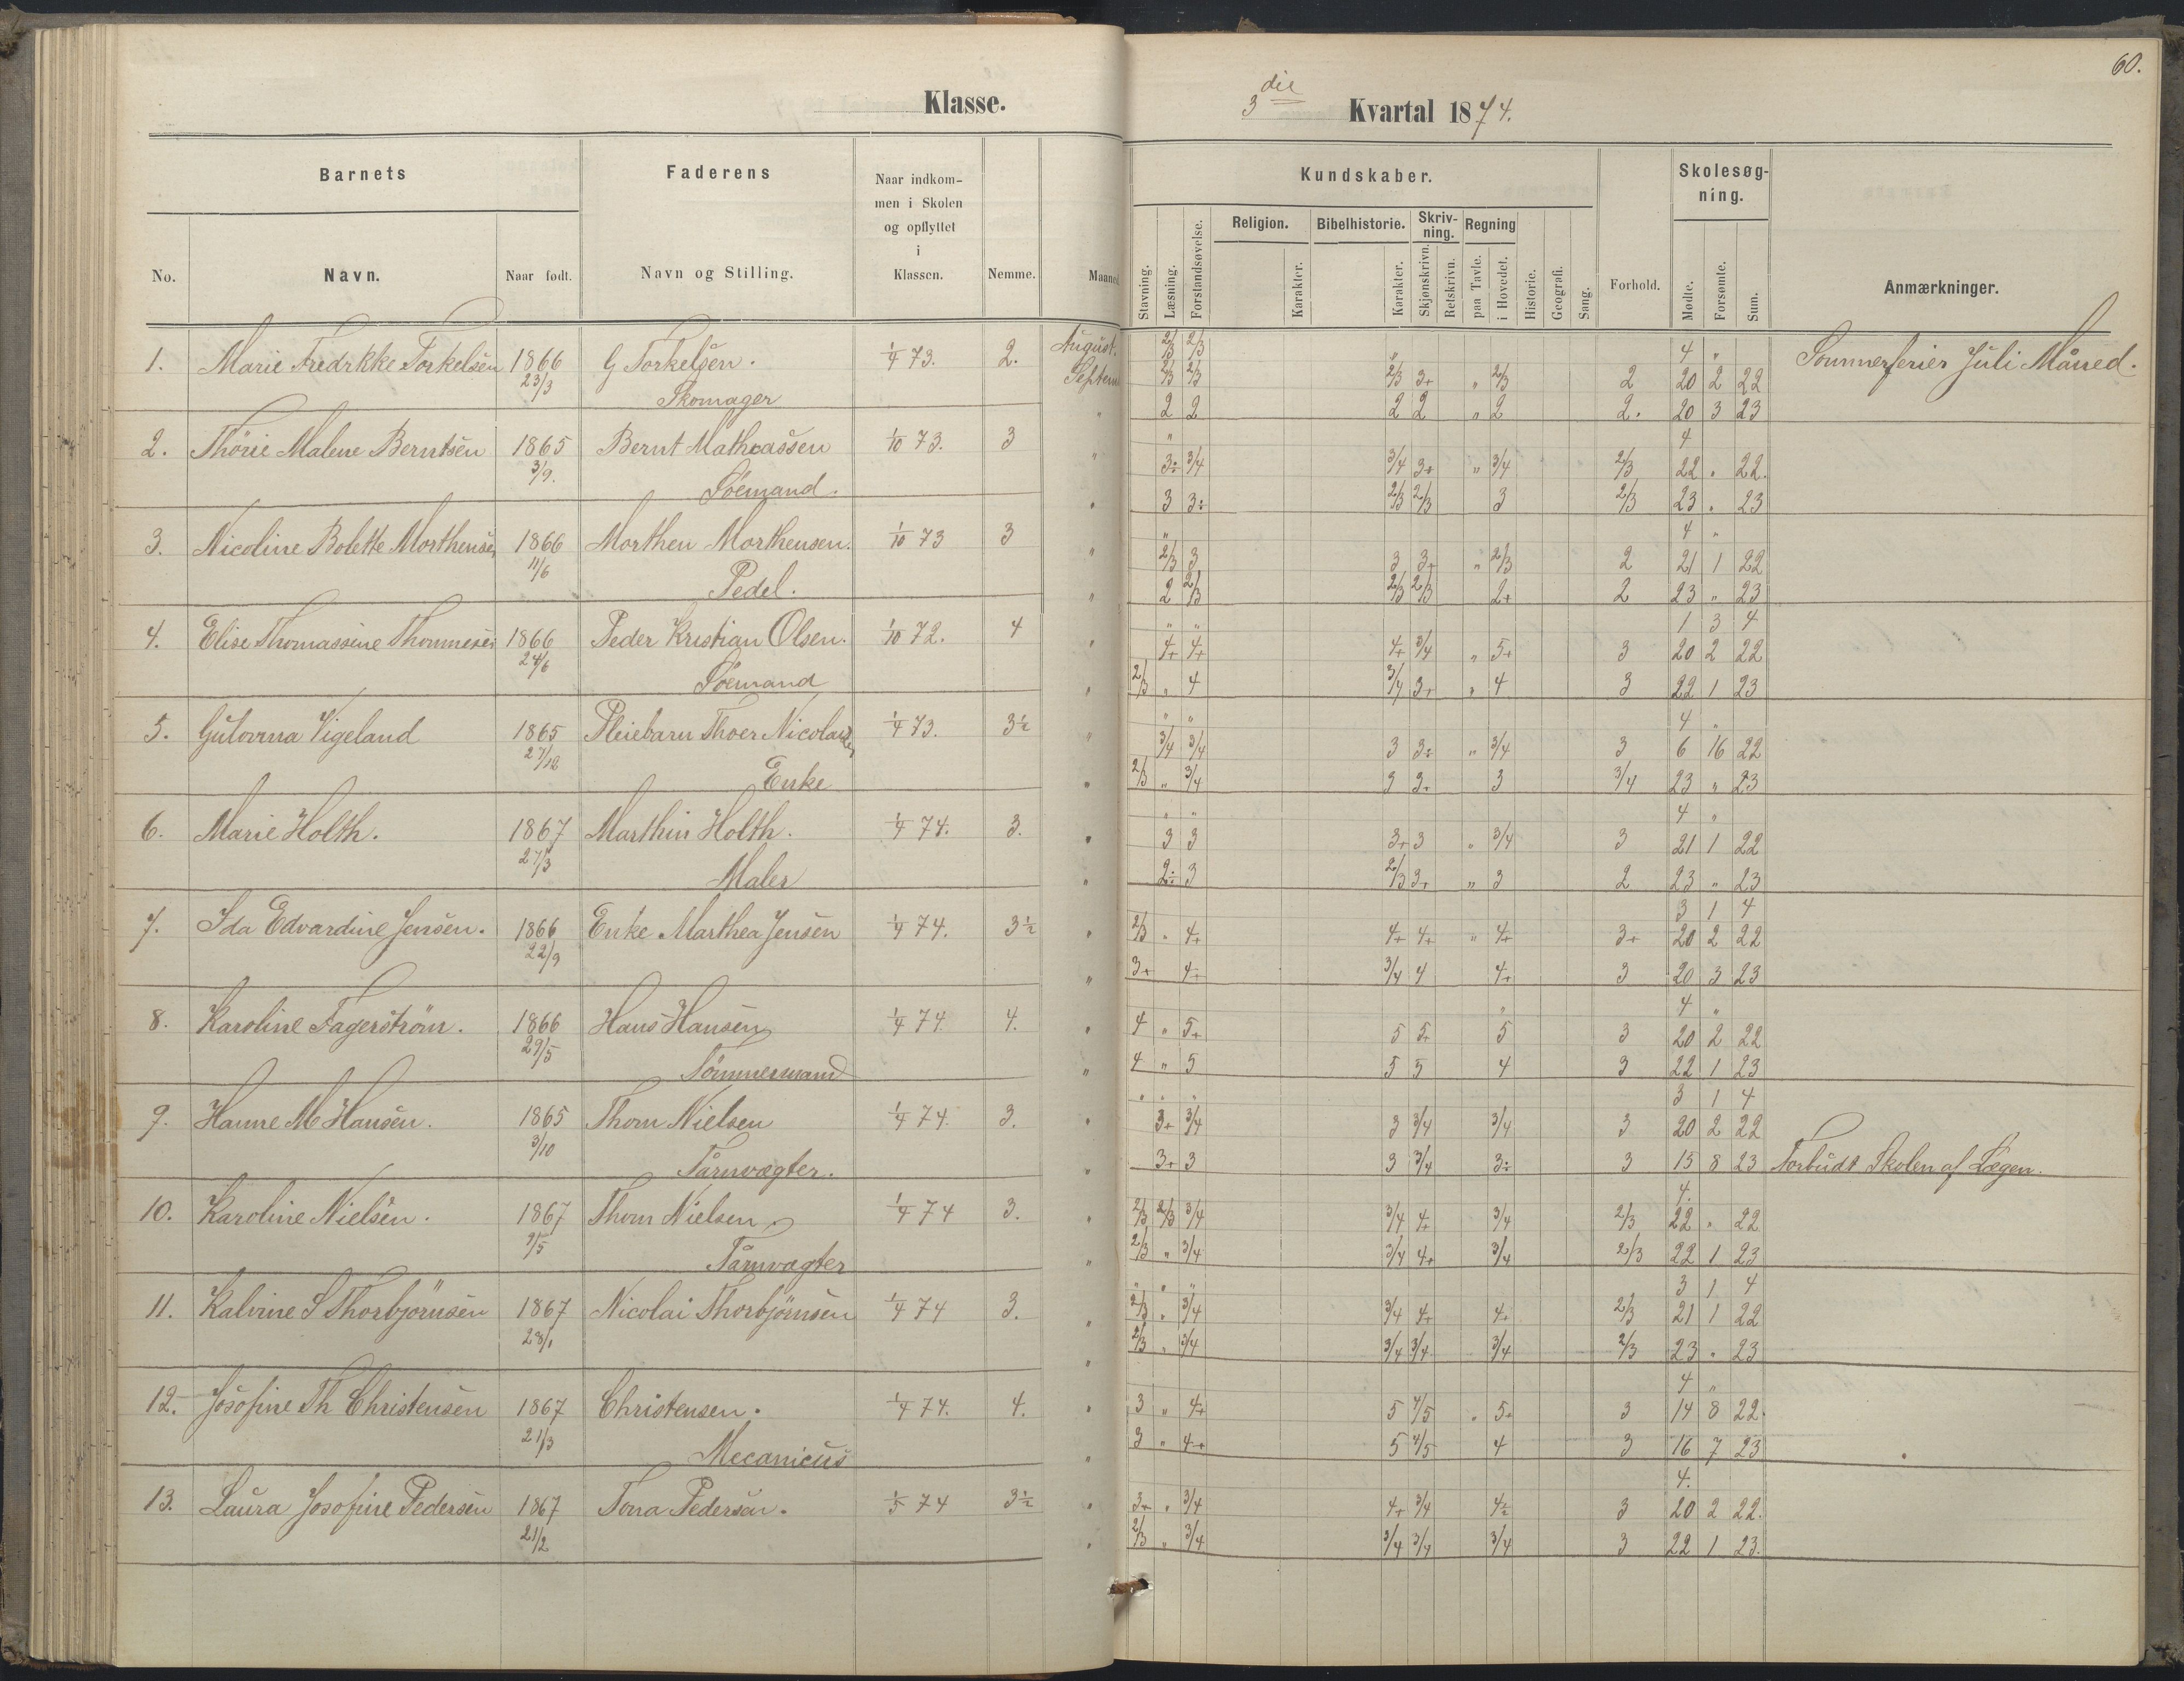 60.
Klasse.
3die Kvartal 1874.
Barnets
Faderens
Naar indkom-
men i Skolen
og opflyttet
i
Klassen.
Nemme.
Maaned
No.
Navn.
Naar født.
Navn og Stilling.
Kundskaber.
Skolesøg-
ning.
Religion.
Bibelhistorie.
Skriv-
ning.
Regning
Stavning.
Læsning.
Forstandsøvelse.
Karakter.
Karakter.
Skjønskrivn.
Retskrivn.
paa Tavle.
i Hovedet.
Historie.
Geografi.
Sang.
Forhold.
Mødte.
Forsømte.
Sum.
Anmærkninger.
1. Marie Fredrkke Torkelsen 1866 G Torkelsen. 1/4 73. 2. August. 2/3 2/3 " 4 " Sommerferier Juli Måned.
23/3 Skomager Septem 2/3 2/3 2/3 3+ " 2/3 2 20 2 22
" 2 2 2 2 " 2 2. 20 3 23
2. Thörie Malene Berntsen 1865 Bernt Matheassen 1/10 73. 3 " " 4
3/9. Söemand. 3÷ 3/4 3/4 3+ " 3/4 2/3 22 " 22.
" 3 3÷ 2/3 2/3 3 2/3 23 " 23
3. Nicoline Bolette Morthensen 1866 Morthen Morthensen. 1/10 73 3 " " 4 "
11/6 Pedel. 2/3 3 3 3+ " 2/3 2 21 1 22
" 2 2/3 2/3 2/3 2+ 2 23 " 23
4. Elise Thomassine Thommesen 1866 Peder Kristian Olsen. 1/10 72. 4 " " " 1 3 4
24/6 Söemand 4+ 4+ 4+ 3/4 " 5+ 3 20 2 22
" 2/3 " 4 3/4 3+ " 4 3 22 1 23
5. Gulovina Vigeland 1865 Pleiebarn Thoer Nicolaisen 1/4 73. 3½ " " " 4 "
27/12 Enke 3/4 3/4 3 3÷ " 3/4 3 6 16 22
" 2/3 " 3/4 3 3+ 3 3/4 23 " 23
6. Marie Holth. 1867 Marthin Holth. 1/4 74. 3. " " " 4 "
27/3 Maler 3 3 3+ 3 " 3/4 3 21 1 22
" 2÷ 3 2/3 3+ " 3 2 23 " 23
7. Ida Edvardine Jensen. 1866 Enke Marthea Jensen 1/4 74. 3½ 3 1 4
22/9 " 2/3 " 4+ 4+ 4+ " 4+ 3+ 20 2 22
" 3+ 4+ 3/4 4 4+ 3 20 3 23
8. Karoline Fagerström. 1866 Hans Hansen 1/4 74 4. " 4 "
29/5 Tömmermand " 4 " 5+ 5 5+ 5 3 20 2 22
" 4 " 5 5 5 4 3 22 1 23
9. Hanne M Hansen. 1865 Thom Nielsen 1/4 74. 3. " " " 3 1 4
3/10 Tårnvægter. " 3+ 3/4 3 3/4 3/4 3 20 2 22
" 3+ 3 3 3/4 3÷ 3 15 8 23 Forbudt Skolen af Lægen.
10. Karoline Nielsen. 1867 Thom Nielsen 1/4 74 3. 4.
9/5 Tårnvægter " 2/3 2/3 3/4 3/4 4+ 3/4 2/3 22 " 22
" 2/3 " 3/4 3/4 4+ 3/4 2/3 22 1 23
11. Kalvine S Thorbjörnsen 1867 Nicolai Thorbjörnsen 1/4 74 3. " " " 3 1 4
28/1 " 2/3 " 3/4 3/4 4+ 4+ 2/3 21 1 22
" 2/3 " 3/4 3/4 3/4 3/4 2/3 23 " 23
12. Josofine Th Christensen 1867 Christensen. 1/4 74. 4. 4 "
21/3 Mecanicus " 3 " 4+ 5 4/5 " 5+ 3 14 8 22.
" 3 " 4+ 5 4/5 4 3 16 7 23
13. Laura Josofine Pedersen 1867 Tona Pedersen. 1/5 74 3½ 4.
21/2 " 3+ " 3/4 4+ 3/4 4÷ 3 20 2 22.
" 2/3 " 3/4 3/4 3/4 3/4 3 22 1 23.